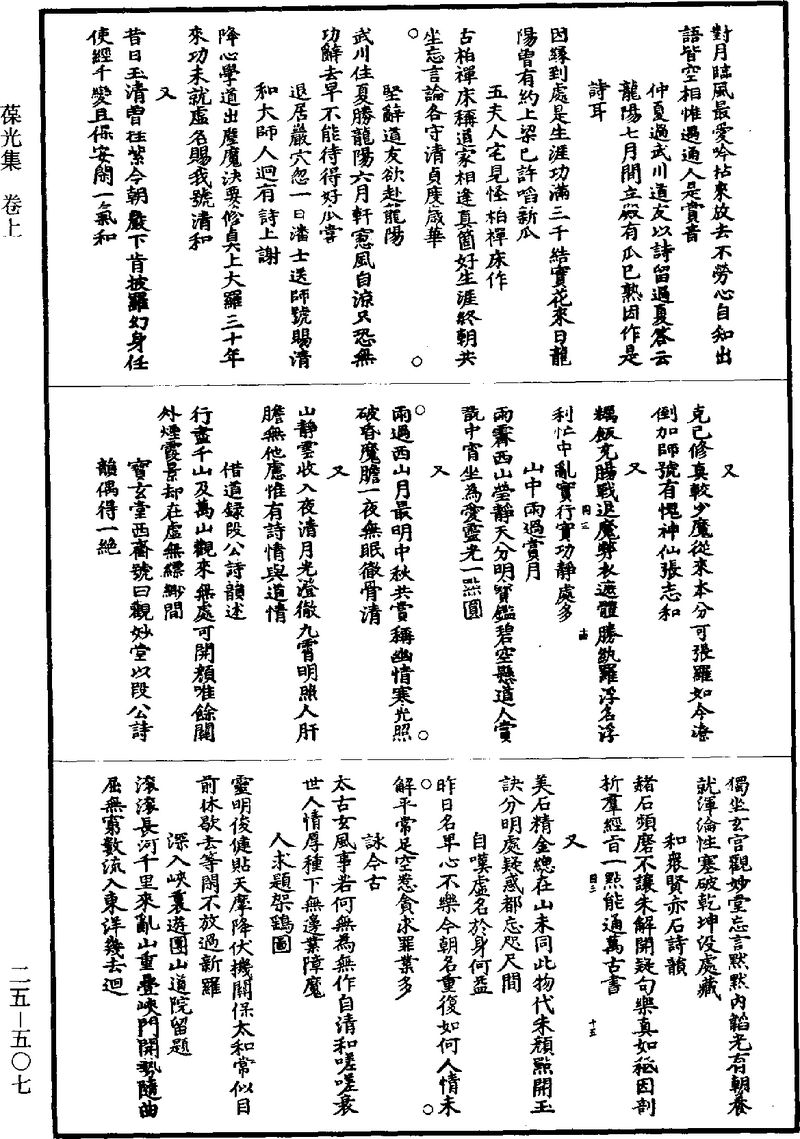 葆光集　卷上
對月臨風最愛吟拈來放去不勞心自知出
語皆空相惟遇通人是賞音
仲夏過武川道友以詩留過夏答云
龍陽七月間立殿有瓜已熟因作是
詩耳
因緣到處是生涯功滿三千結寶花來日龍
陽曾有約上梁已許㗖新瓜
五夫人宅見怪柏禪床作
古柏禪床稱道家相逢真箇好生涯終朝共
坐忘言論各守清貞度歲華
堅辭道友欲赴龍陽
武川住夏勝龍陽六月軒窻風自涼只恐無
功辭去早不能待得好瓜嘗
退居巖穴忽一日潘士送師號賜清
和大師人迴有詩上謝
降心學道出塵魔決要修真上大羅三十年
來功未就虛名賜我號清和
又
昔日玉清曾挂紫今朝巖下肯披羅幻身任
使經千變且保安閑一氣和
又
克己修真較少魔從來本分可張羅如今濟
倒加師號有愧神仙張志和
又
糲飯充腸戰退魔弊衣遮體勝紈羅浮名浮
利忙中亂實行實功靜處多
山中雨過賞月
雨霽西山瑩靜天分明寶鑑碧空懸道人賞
翫中宵坐為愛靈光一點圓
又
雨過西山月最明中秋共賞稱幽情寒光照
破昏魔膽一夜無眠徹骨清
又
山靜雲收入夜清月光澄徹九霄明照人肝
膽無他慮惟有詩情與道情
借道録段公詩韻述
行盡千山及萬山觀來無處可開顏唯餘關
外煙霞景却在虛無縹緲間
寶玄堂西齋號曰觀妙堂以段公詩
韻偶得一絕
獨坐玄宮觀妙堂忘言默默內韜光有朝養
就渾淪性塞破乾坤没處藏
和衆賢赤石詩韻
赭石頻磨不讓朱解開疑句樂真如秪因剖
析羣經旨一點能通萬古書
又
美石精金總在山未同此物代朱顏點開玉
訣分明處疑惑都忘咫尺間
自嘆虛名於身何益
昨日名卑心不樂今朝名重復如何人情未
解平常足空惹貪求罪業多
詠今古
太古玄風事若何無為無作自清和嗟嗟衰
世人情厚種下無邊業障魔
人求題架鷂圖
靈明俊健貼天摩降伏機關保太和常似目
前休歇去等閑不放過新羅
深入峽裏遊團山道院留題
滚滚長河千里來亂山重疊峽門開勢隨曲
屈無窮數流入東洋幾去迴
二五—五〇七